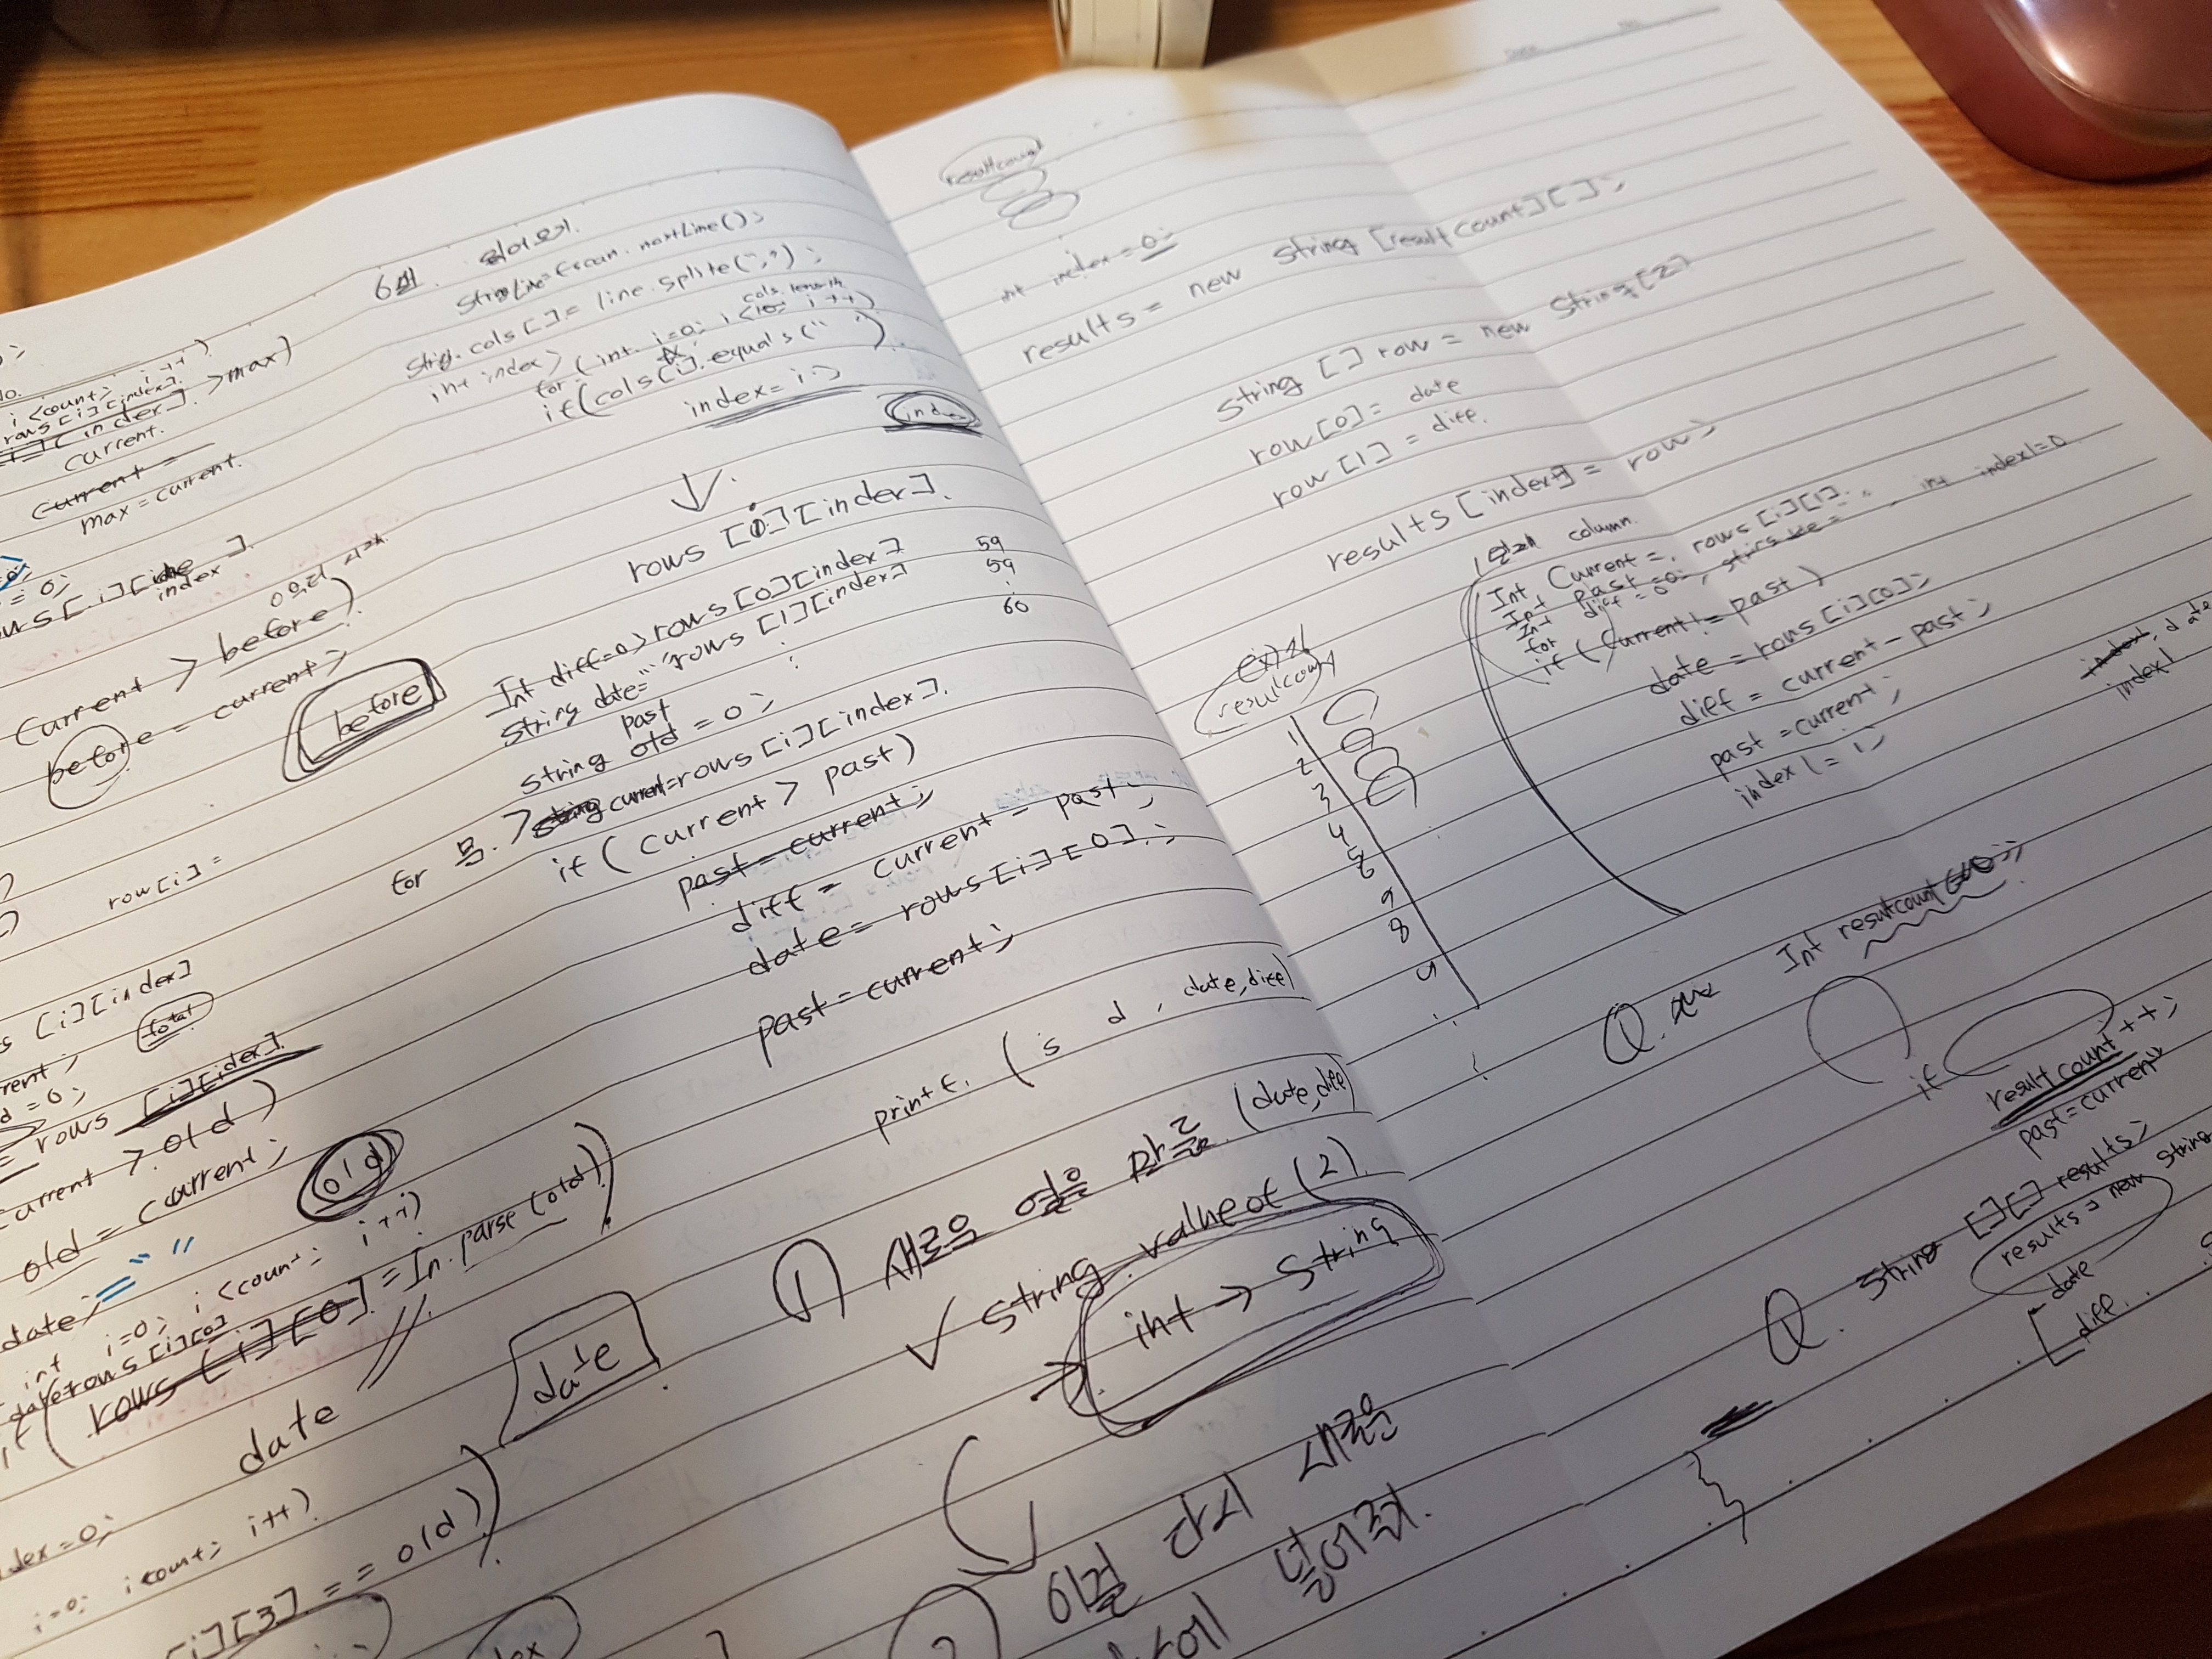 0;
i <count; i++)
rows[i][index].
[i][index] >max)
current.
current =
max = current.
= 0;
rows[i][index]
index
current > before)
before = current;
before
row[i] =
[i][index]
total
rent;
d = 0;
= rows [i][index].
current > old)
old = current;
old
date = " "
int i=0; i <count; i++)
date=rows[i][0]
rows [i][0] = In.parse(old))
date
date
dex = 0;
i=0; i count; i++)
[i][3] == old)
6번.
String Line = scan.nextLine();
String.cols[] = line.splite(",");
int index;
cols.length
for (int i=0; i<10; i++)
if(cols[i].equals(" ")
index = i;
index
↓
rows [i][index].
Int diff=0; rows[0][index] 59
String date=" " rows [1][index] 59
: 60
past
String old = 0;
for 문. > String current=rows[i][index].
if ( current > past)
past = current;
diff = current - past;
date = rows[i][0];
past = current;
printf. ( s d , date, diff)
① 새로운 열을 만듦 (date, diff)
✓ String.valueof(2).
int → String
② 이걸 다시 새로운
에 넣어줘.
resultcount
int index = 0;
results = new String [resultcount][];
String [] row = new String[2]
row[0] = date
row[1] = diff.
results [index+] = row;
column.
Int Current = rows[i][1];
Int past = 0; int index1=0
Int diff = 0;
for
if (current != past)
date = rows[i][0];
diff = current - past;
past = current;
index1 = i;
index, date
index1
resultcount
1
2
3
4
5
6
9
8
Int resultcount = 0;
Q.
if
resultcount++;
past = current;
Q. String [][] results;
results = new String
date
diff.